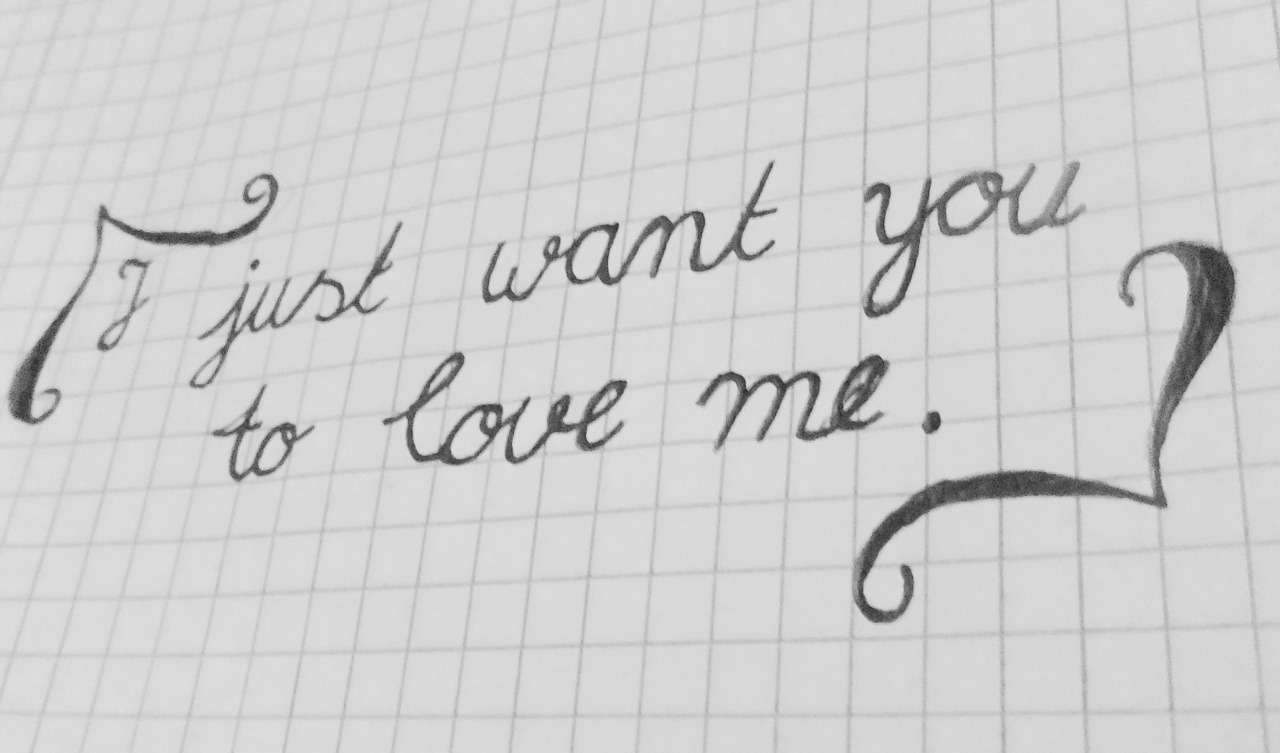 I just want you
to love me.